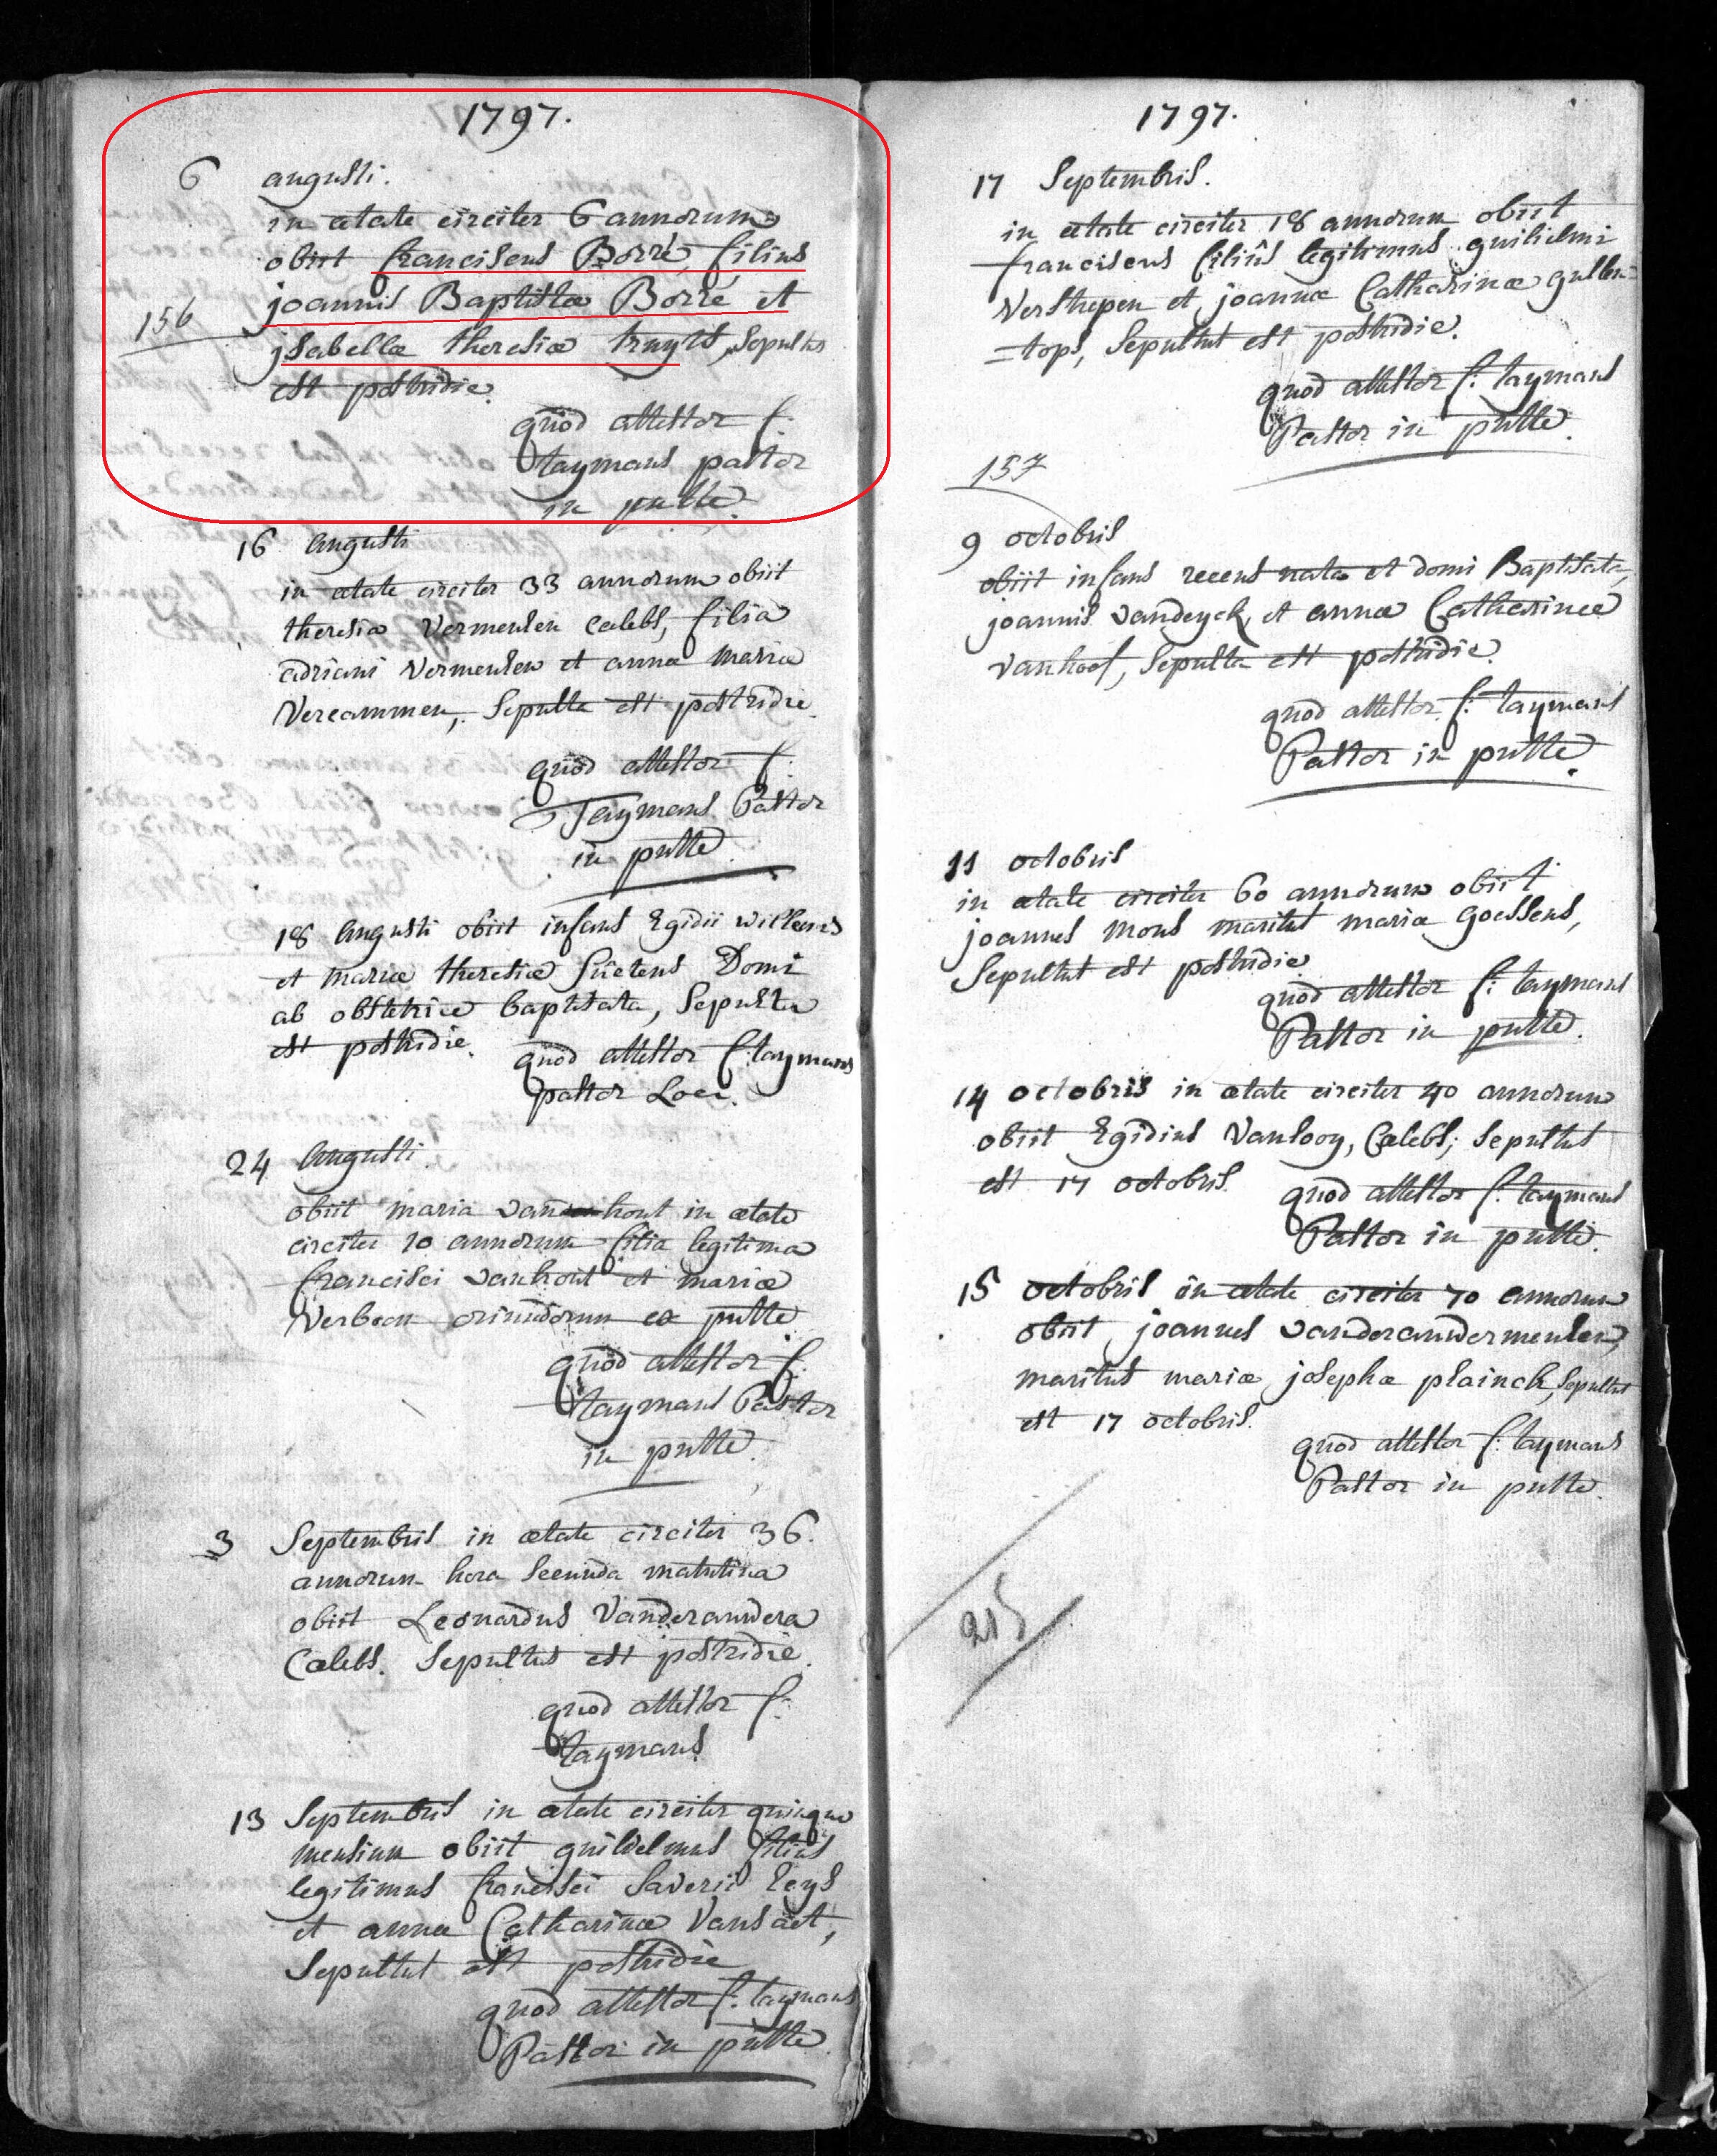 1797.
6 augusti.
in ætate circiter 6 annorum
obiit franciscus Borré, filius
joannis Baptistæ Borré et
156
isabellæ theresiæ truyts, sepultus
est postridie.
quod attestor f:
taymans pastor
in putte.
16 augusti
in ætate circiter 33 annorum obiit
theresia Vermeulen cælebs, filia
adriani Vermeulen et annæ mariæ
Vercammen, sepulta est postridie.
quod attestor f.
Taymans Pastor
in putte.
18 augusti obiit infans Egidii willems
et mariæ theresiæ Suetens Domi
ab obstetrice baptisata, sepulta
est postridie.
quod attestor f: taymans
pastor Loci.
24 augusti.
obiit maria vanhout in ætate
circiter 10 annorum filia legitima
francisci vanhout et mariæ
Verbeen oriundorum ex putte
quod attestor f.
taymans Pastor
in putte.
3 Septembris in ætate circiter 36.
annorum hora secunda matutina
obiit Leonardus Vanderauwera
Cælebs. Sepultus est postridie.
quod attestor f:
taymans
13 Septembris in ætate circiter quinque
mensium obiit guilielmus filius
legitimus francisci Saverii
et annæ Catharinæ
Sepultus est postridie
quod attestor f: taymans
Pastor in putte
1797.
17 Septembris.
in ætate circiter 18 annorum obiit
franciscus filius legitimus guilielmi
Verstrepen et joannæ Catharinæ gullen
=tops, sepultus est postridie.
quod attestor f: taymans
Pastor in putte.
157
9 octobris
obiit infans recens nata et domi Baptisata,
joannis vandeyck, et annæ Catharinæ
vanhoof, sepulta est postridie.
quod attestor f: taymans
Pastor in putte.
11 octobris
in ætate circiter 60 annorum obiit
joannes mons maritus mariæ goessens,
Sepultus est postridie
quod attestor f: taymans
Pastor in putte.
14 octobris in ætate circiter 40 annorum
obiit Egidius Vanlooy, Cælebs; sepultus
est 17 octobris.
quod attestor f. taymans
Pastor in putte.
15 octobris in ætate circiter 70 annorum
obiit joannes vanderauwermeulen,
maritus mariæ josephæ plainck, sepultus
est 17 octobris.
quod attestor f: taymans
Pastor in putte.
215